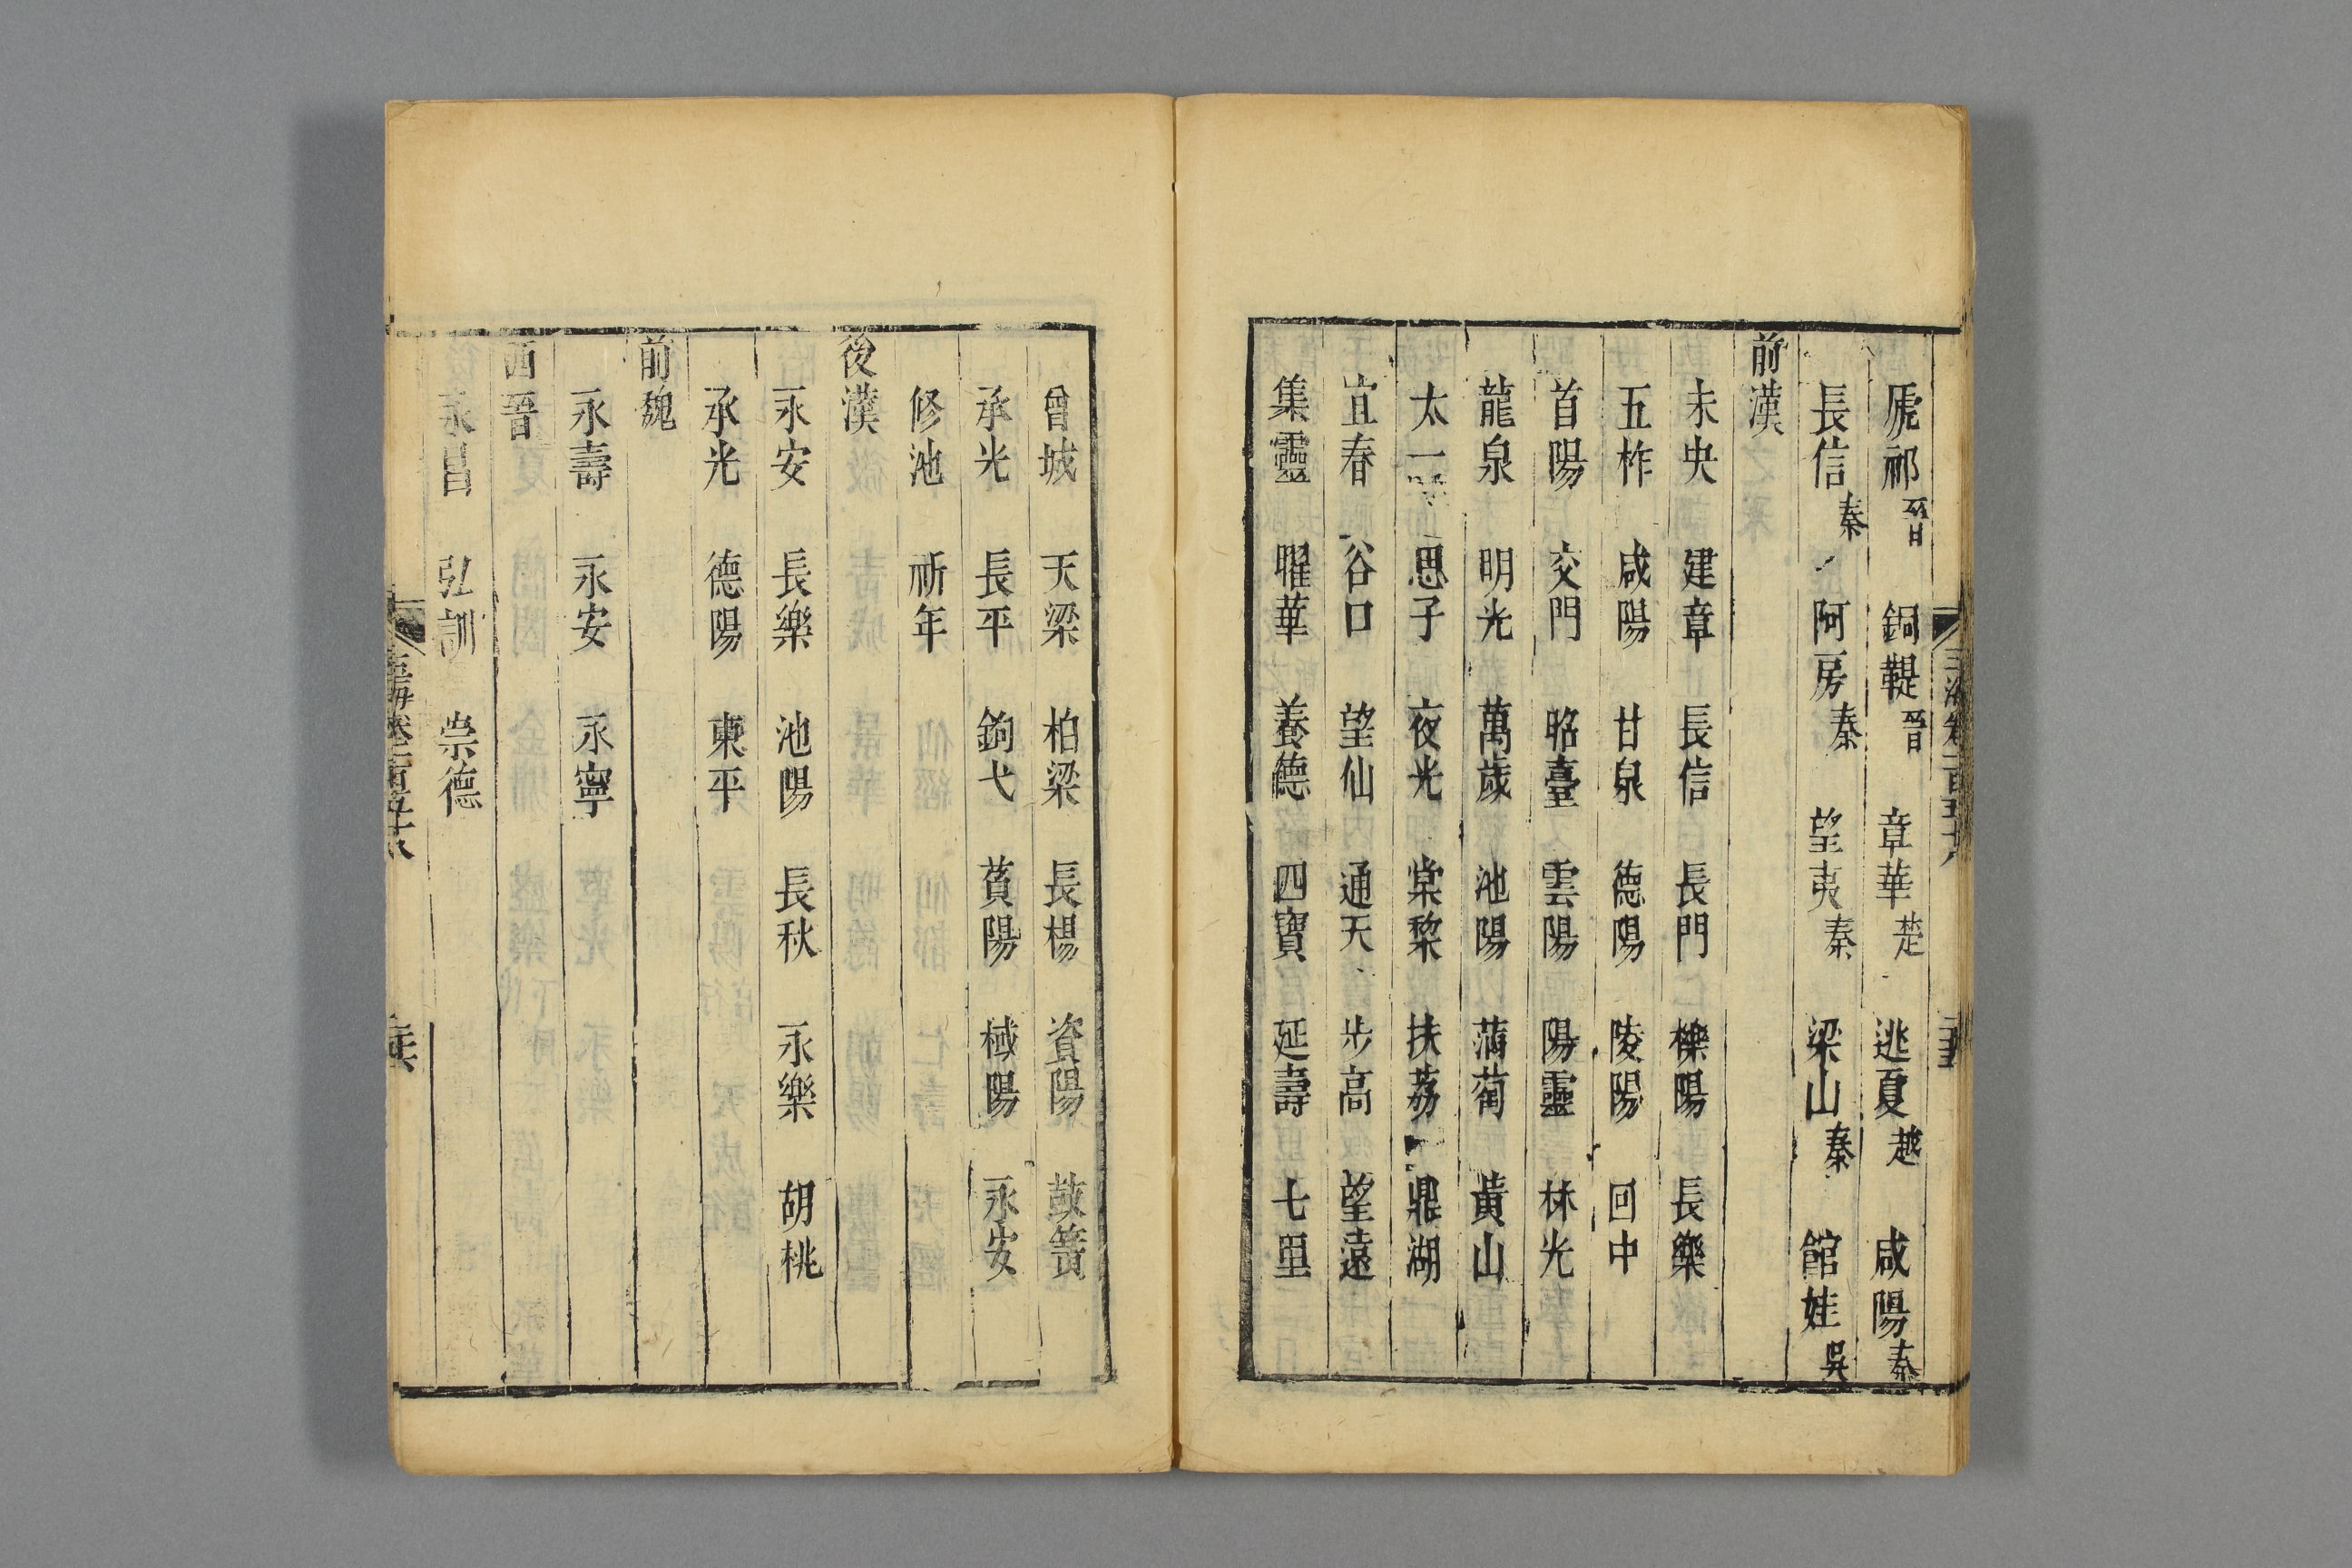 虒祁晉 銅鞮晉 章華楚 逃夏越 咸陽秦
長信秦 阿房秦 望夷秦 梁山秦 館娃吳
前漢
未央 建章 長信 長門 櫟陽 長樂
五柞 咸陽 甘泉 德陽 陵陽 回中
首陽 交門 昭臺 雲陽 陽靈 林光
龍泉 明光 萬歲 池陽 蒲萄 黃山
太一 思子 夜光 棠棃 扶荔 鼎湖
宜春 谷口 望仙 通天 步高 望遠
集靈 曜華 養德 四寶 延壽 七里
曾城 天梁 柏梁 長楊 資陽 鼓簧
承光 長平 鉤弋 萯陽 棫陽 永安
修池 祈年
後漢
永安 長樂 池陽 長秋 永樂 胡桃
承光 德陽 東平
前魏
永壽 永安 永寧
西晉
永昌 弘訓 崇德
玉海卷一百五十八